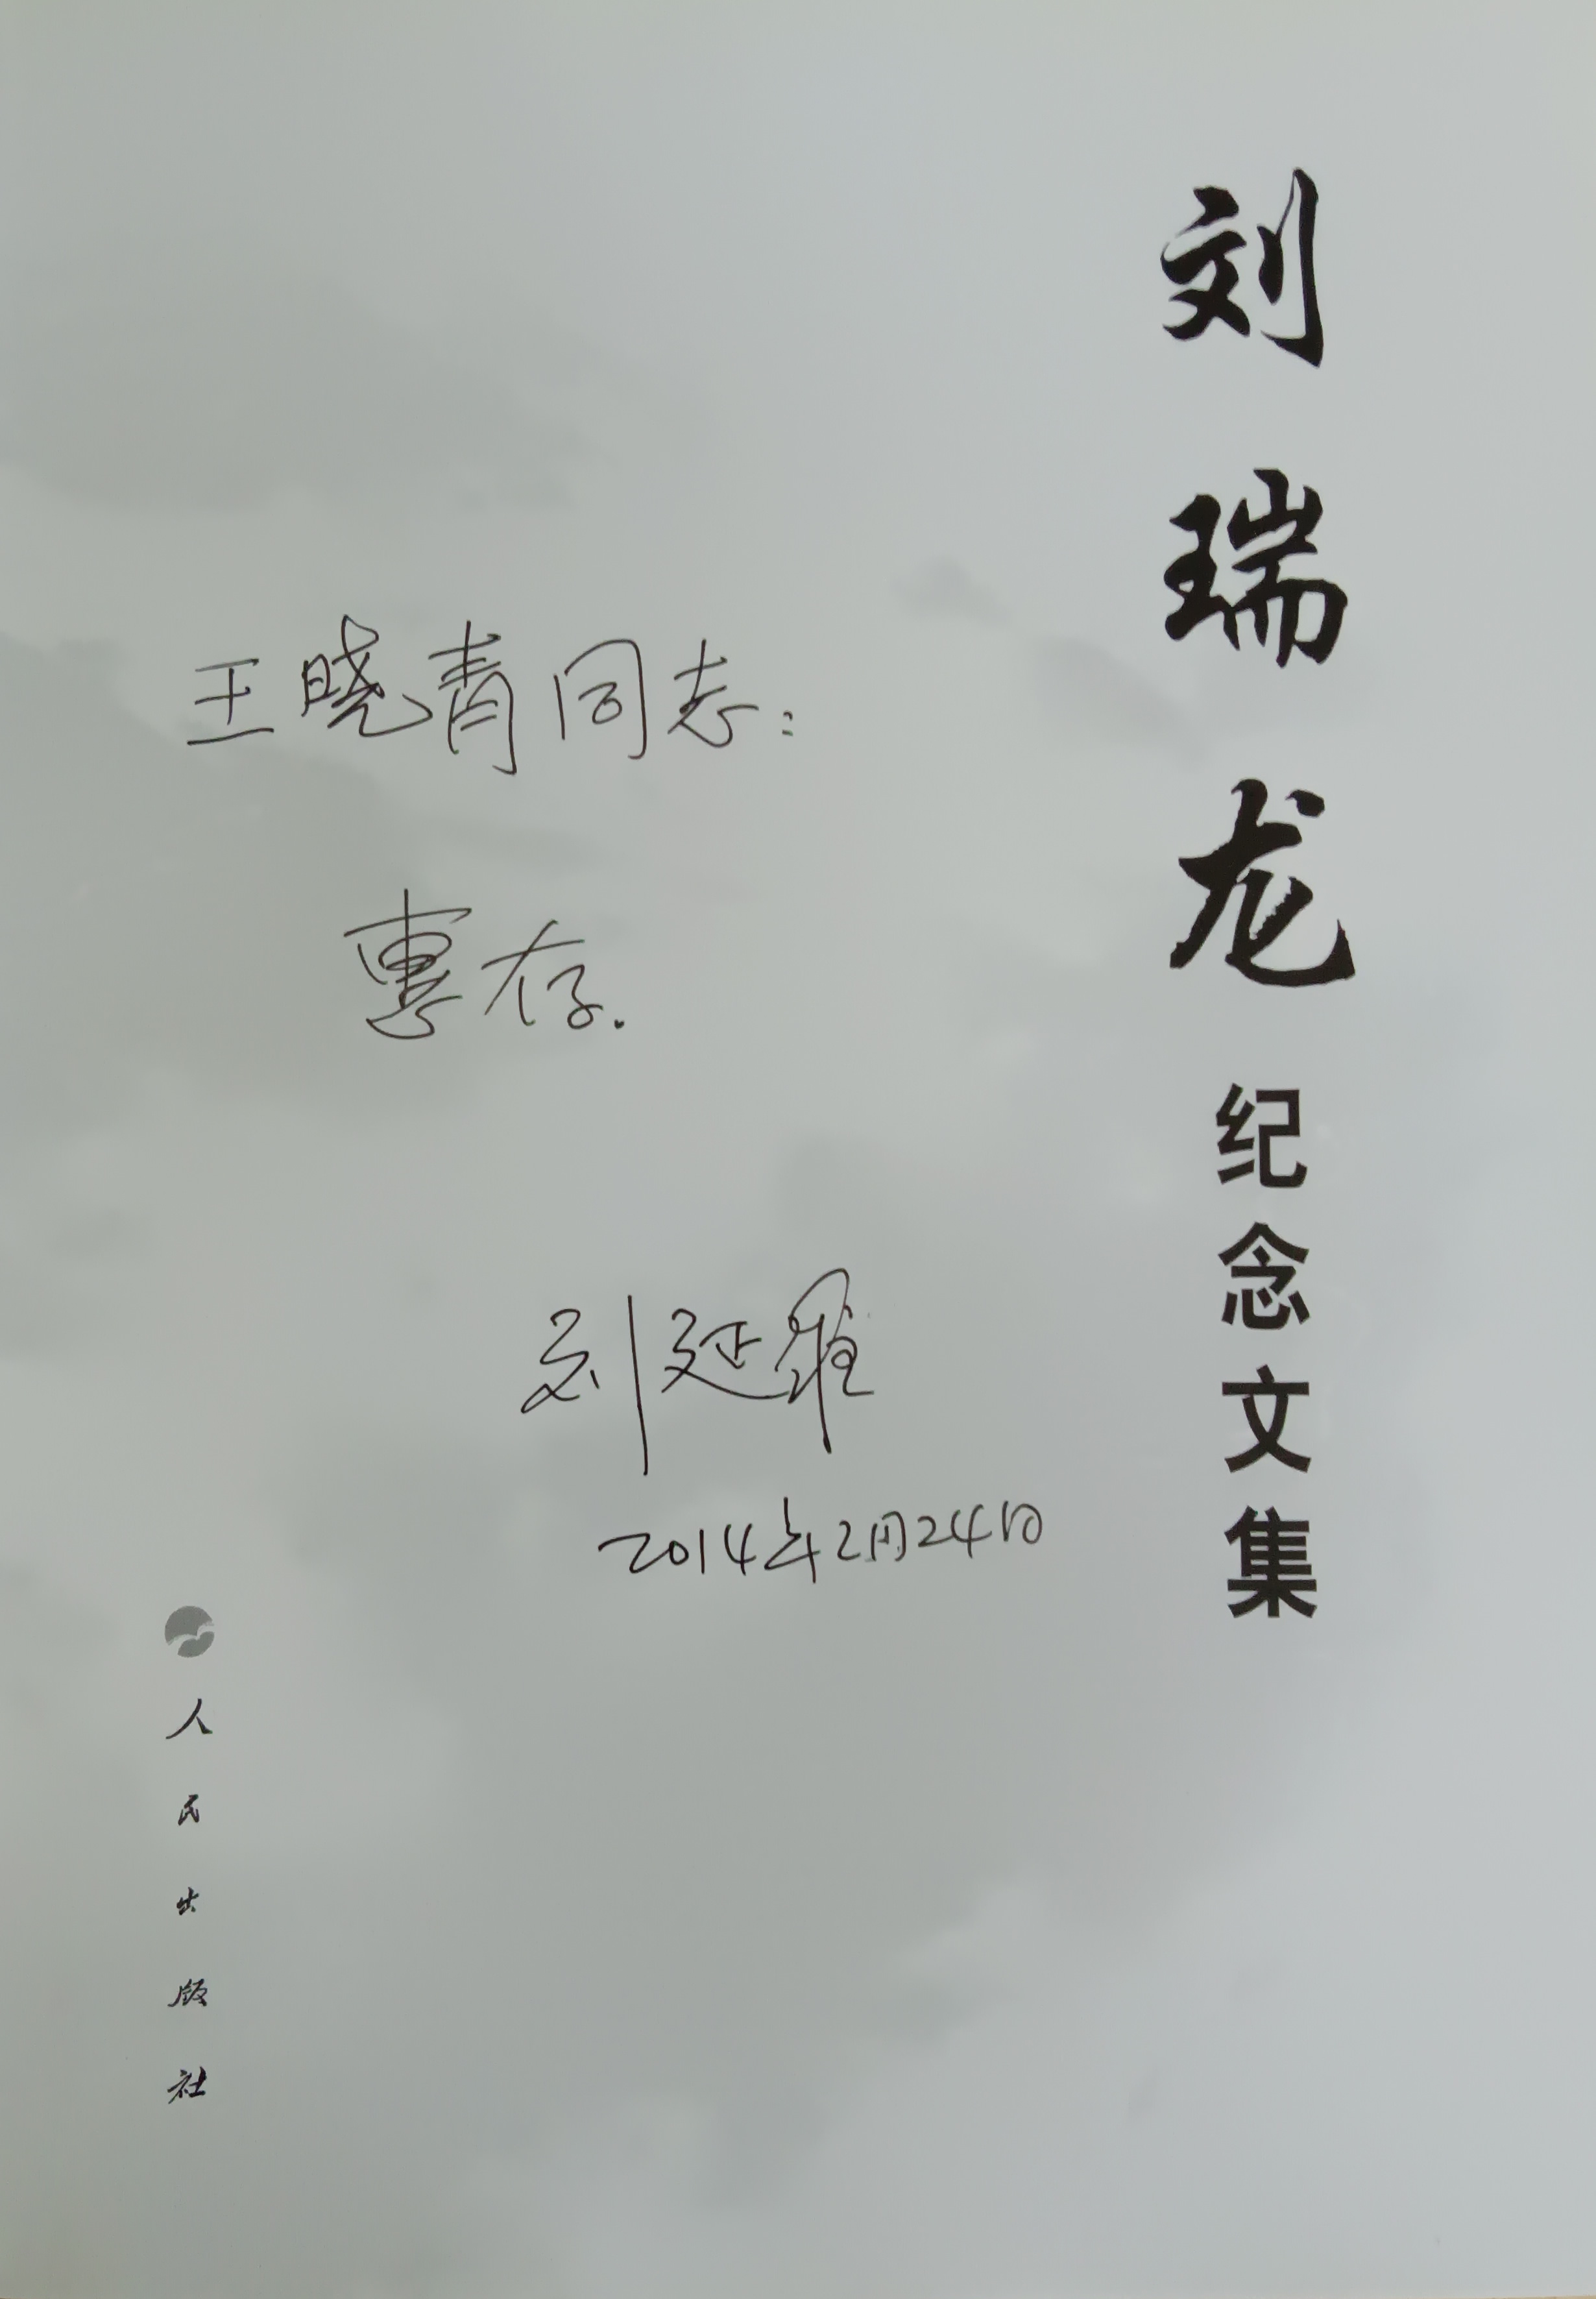 刘瑞龙纪念文集
王晓青同志：
惠存.
刘延
2014年2月24日
人民出版社